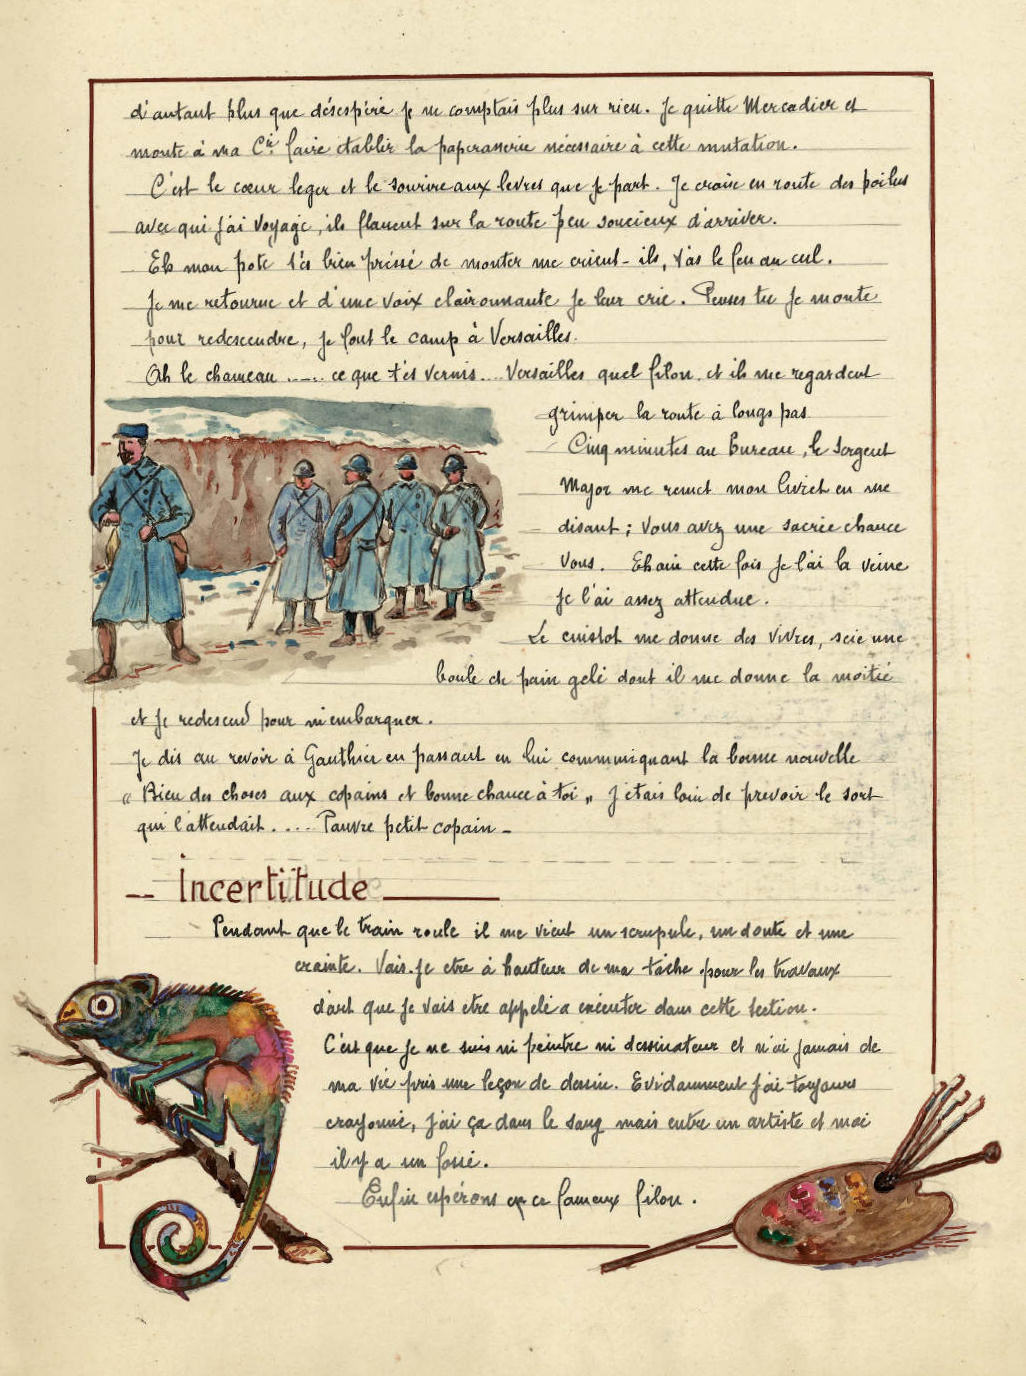 d'autant plus que désespéré je ne comptais plus sur rien. Je quitte Mercadier et
monte à ma Cie faire établir la paperasserie nécessaire à cette mutation.
C'est le cœur leger et le sourire aux levres que je part. Je croise en route des poilus
avec qui j'ai voyagé, ils flanent sur la route peu soucieux d'arriver.
Eh mon pote t'es bien préssé de monter me crient-ils, t'as le feu au cul.
Je me retourne et d'une voix claironnante je leur crie. Penses tu je monte
pour redescendre, je fout le camp à Versailles.
Oh le chameau ..... ce que t'es vernis.... Versailles quel filon. et ils me regardent
grimper la route à longs pas
Cinq minutes au Bureau, le sergent
Major me remet mon livret en me
disant ; Vous avez une sacrée chance
Vous. Eh oui cette fois je l'ai la veine
je l'ai assez attendue.
Le cuistot me donne des vivres, scie une
boule de pain gelé dont il me donne la moitié
et je redescend pour m'embarquer.
Je dis au revoir à Gauthier en passant en lui communiquant la bonne nouvelle
« Bien des choses aux copains et bonne chance à toi » J'étais loin de prevoir le sort
qui l'attendait.... Pauvre petit copain -
-- Incertitude
Pendant que le train roule il me vient un scrupule, un doute et une
crainte. Vais-je etre à hauteur de ma tâche pour les travaux
d'art que je vais etre appelé a exécuter dans cette section.
C'est que je ne suis ni peintre ni dessinateur et n'ai jamais de
ma vie pris une leçon de dessin. Evidamment j'ai toujours
crayonné, j'ai ça dans le sang mais entre un artiste et moi
il y a un fossé.
Enfin espérons en ce fameux filon.